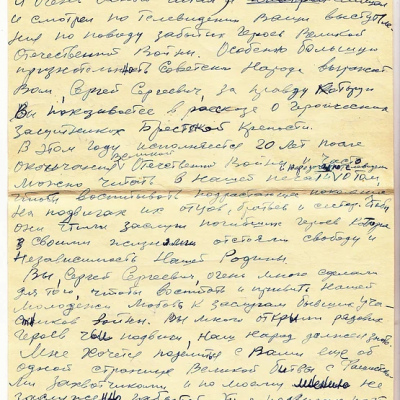 и смотрел по телевидению Ваши выступле-
ния по поводу забытых героев Великой
Отечественной Войны. Особенно большую
признательность Советский Народ выражает
Вам, Сергей Сергеевич, за правду которую
Вы показываете в рассказе о героических
защитниках Брестской Крепости.
В этом году исполняется 20 лет после
окончания Великой Отечественной Войны и часто
можно читать в нашей печати о том
чтобы воспитывать подрастающее поколение
на подвигах их отцов, братьев и сестер. Чтобы
они чтили заслуги погибших героев которые
своими жизнями отстояли свободу и
независимость Нашей Родины.
Вы, Сергей Сергеевич, очень много сделали
для того, чтобы воспитать и привить нашей
молодежи любовь к заслугам бывших уча-
стников войны. Вы много открыли рядовых
героев чьи подвиги, наш народ должен знать.
Мне хочется поделится с Вами еще об
одной странице Великой битвы с фашистски-
ми захватчиками и по моему мнению не